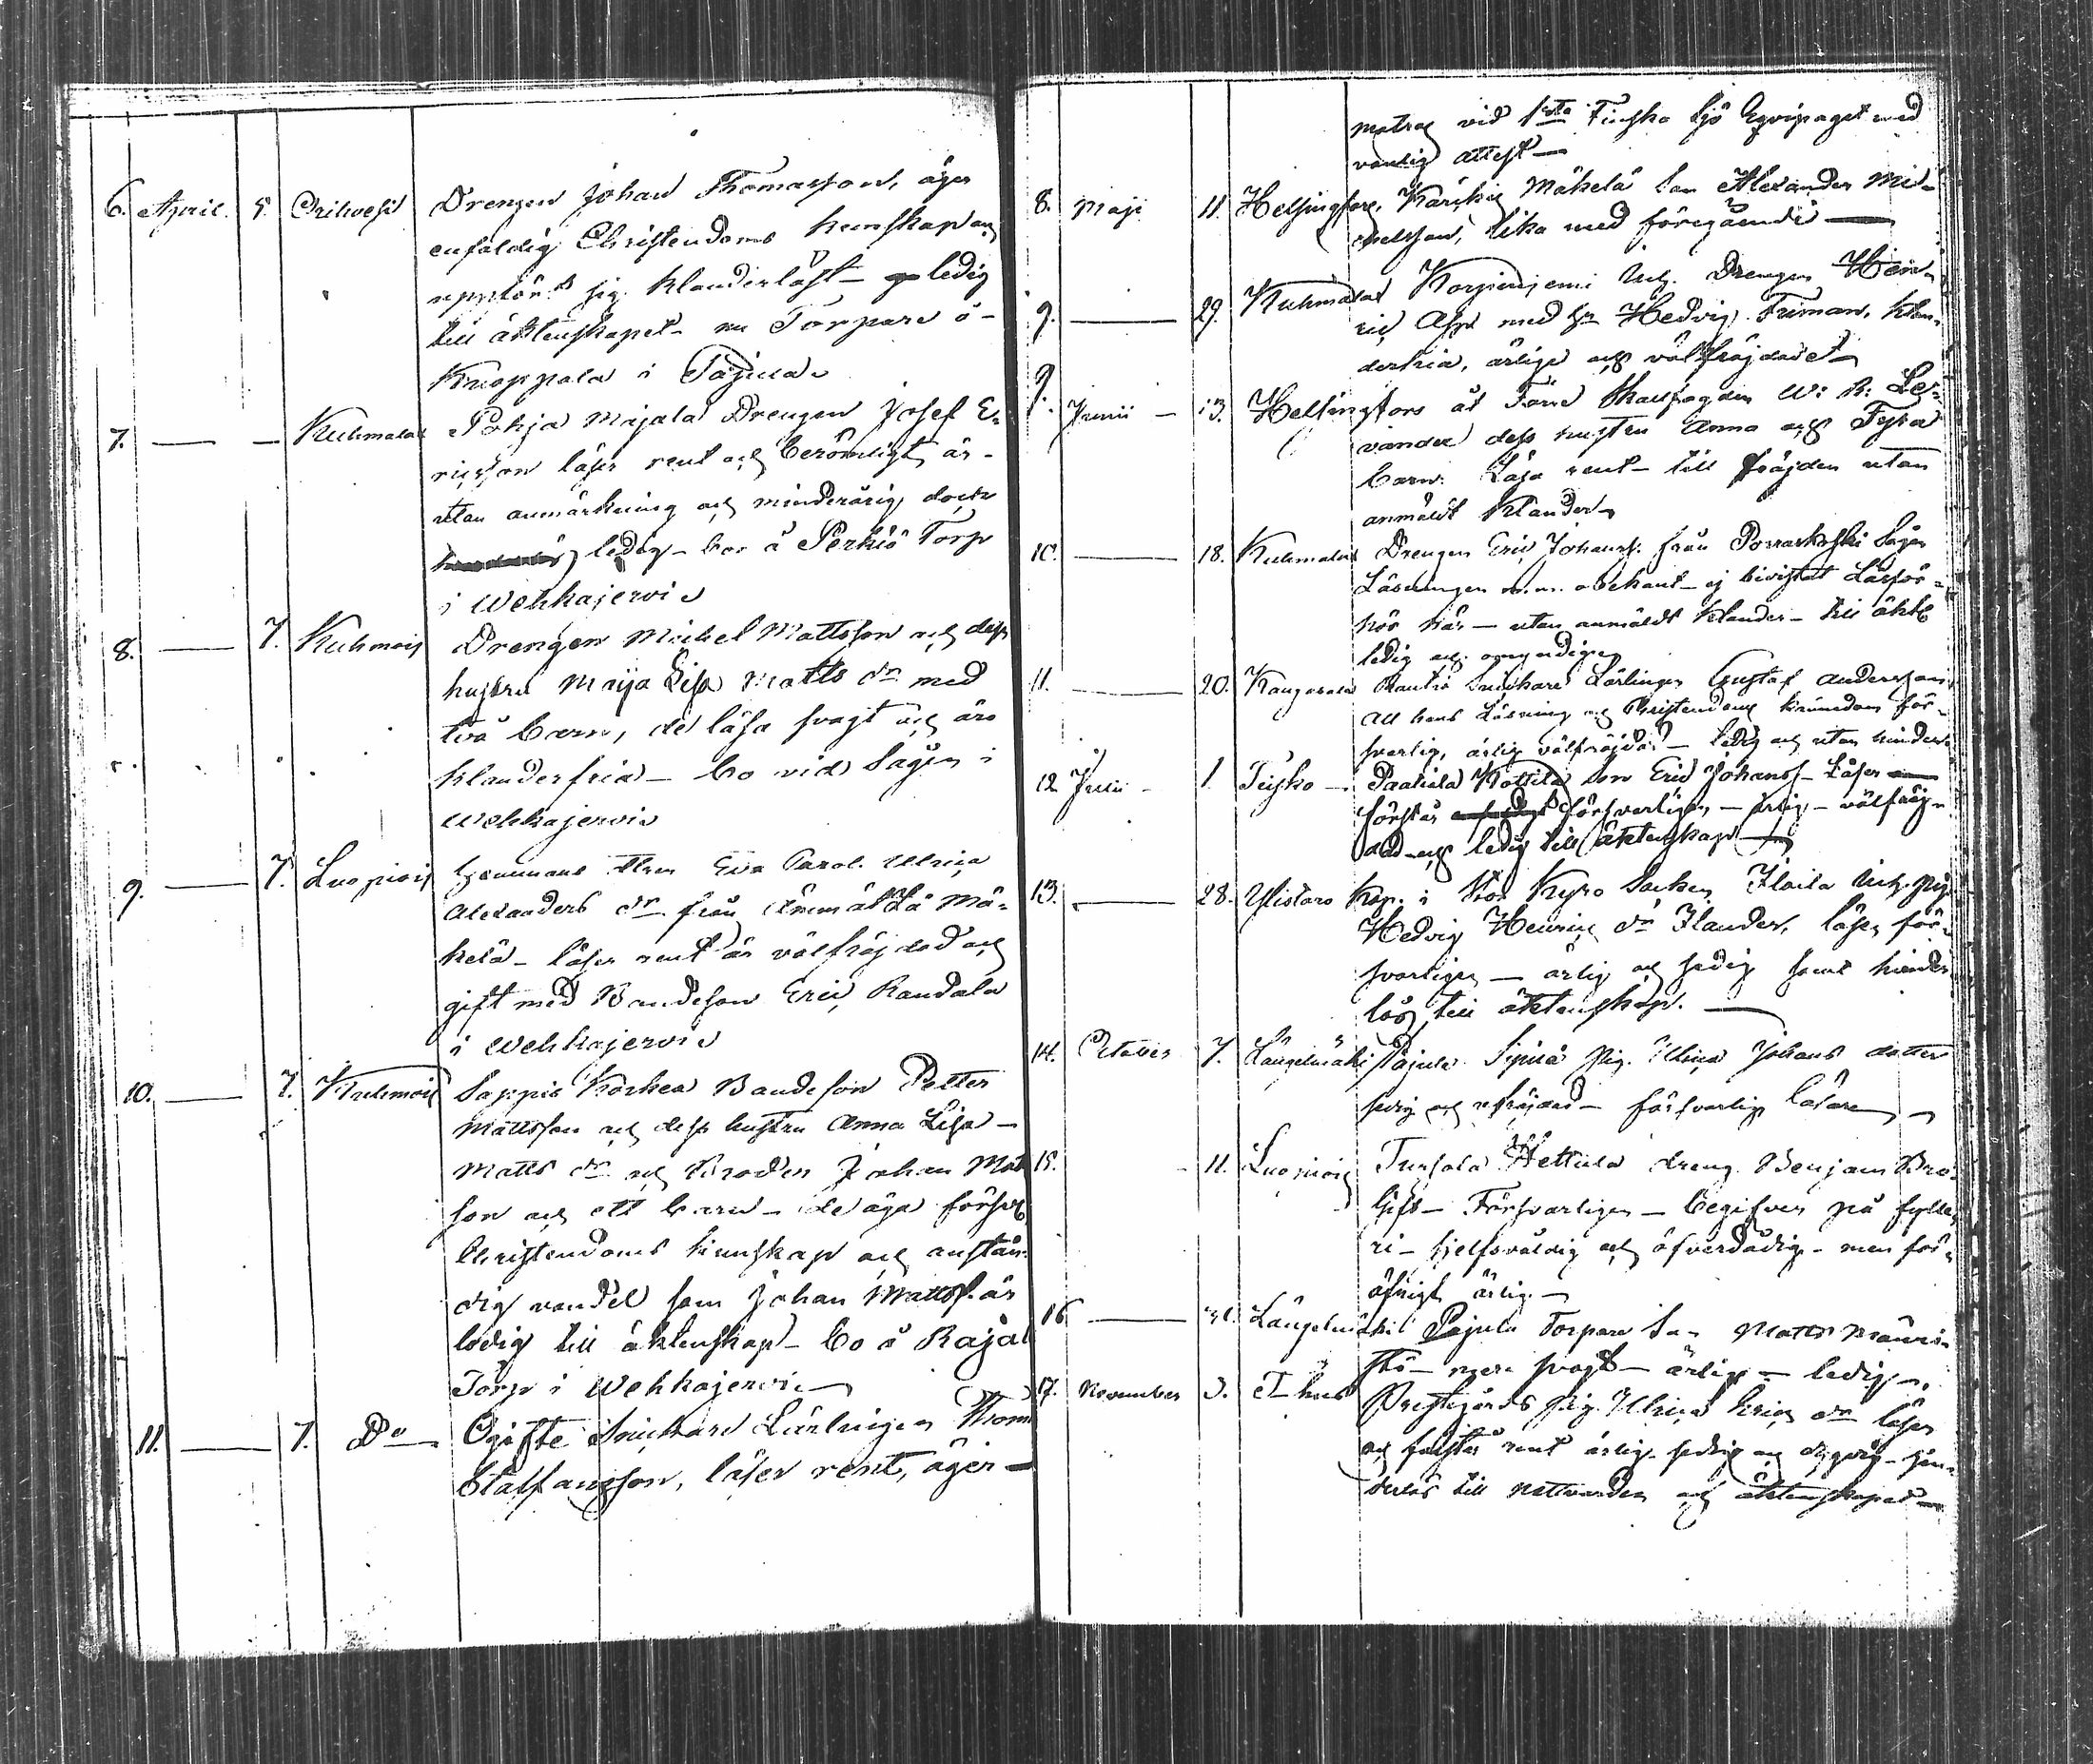 6. April. 5. Orihvesi Drengen Johan Thomasson, äger
enfaldig Christendoms kunskap och
uppfört sig klanderlöst - ledig
till äktenskapet - nu Torpare å
Knappala i Pajula
7. — — Kuhmalax Pohja Majala Drengen Josef E-
ricsson läser rent och berömligt är -
utan anmärkning och minderårig dock
ledig - bor å Perkiö Torp
i Wehkajervi
8. — 7. Kuhmois Drengen Michel Mattsson och dess
hustru Maja Lisa Matts dr med
två barn, de läsa svagt och äro
klanderfria - bo vid Sågen i
Wehkajervi
9. — 7. Luopiois Eva Carol. Ulrica
Alexanders dr från Ämmätsä Mä-
kelä - läser rent är välfräjdad och
gift med Bondeson Eric Randala
i Wehkajervi
10. — 7. Kuhmois Sappis Körkea Bondeson Petter
Mattsson och dess hustru Anna Lisa -
Matts dr och Broder Johan Mats
son och ett barn - de äga försv.
Christendoms kunskap och anstän-
dig vandel samt Johan Mattss. är
ledig till äktenskap - bo å Rajal
Torp i Wehkajervi
11. — 7. Do Ogifte Snickare Lärlingen Thom
Staffansson, läser rent, äger -
matros vid 1sta Finska Sjö Eqvipaget med
vanlig attest -
8. Maji 11. Helsingfors, Kärkis Mäkelä Son Alexander Mi-
chelsson, lika med föregående
9. — 29. Kuhmalax Korpiniemi Inh. Drengen Hein-
ric Asp med h. Hedvig Friman, klan-
derfria, ärliga och välfräjdade
9. Junii - 13. Helsingfors åt Förre Skallfogden W: R: Le-
vander dess hustru Anna och Fyra
barn. Läsa rent - till fräjden utan
anmäldt klander
10. — 18. Kuhmalax Drengen Eric Johanss. från Porraskoski Såge
Läsningen m.m. obekant - ej bivistat Läsför-
hör här - utan anmäldt klander - till äkte
ledig och
11. — 20. Kangasala Rautio Snickare Lärlingen Gustaf Andersson
All hans Läsning och Christendoms kunnedom för-
svarlig, ärlig välfräjdad - ledig och utan hinder
12 Julii - 1. Teisko - Paaliala Kottila Son Eric Johanss - Läser
förstår försvarligen - ärlig - välfräj-
dad och ledig till äktenskap
13. — 28. Ylistaro Kap. i Stor Kyro Socken, Ilaila Inh. pig.
Hedvig Henric dr Ilander, läser för-
svarligen - ärlig och sedig samt hinder
lös till äktenskap.
14. October 7. Längelmäki Pajula Sipilä Pig. Ulrica Johans dotter
sedig och - försvarlig läsare
15. - 11. Luopiois Tursala Hettula dreng. Benjam Bro-
- Försvarligen - begifven på fylle-
ri - sjelfsvåldig och öfverdådig - men för-
öfrigt ärlig
16 — 31. Längelmäki Pajula Torpare Son Matts Mauri-
- svagt - ärlig - ledig
17. November 3. T-hus Prestgårds pig. Ulrica Erics dr läser
och förstår rent ärlig - sedig och dygdig - hin-
derlös till nattvarden och äktenskapet